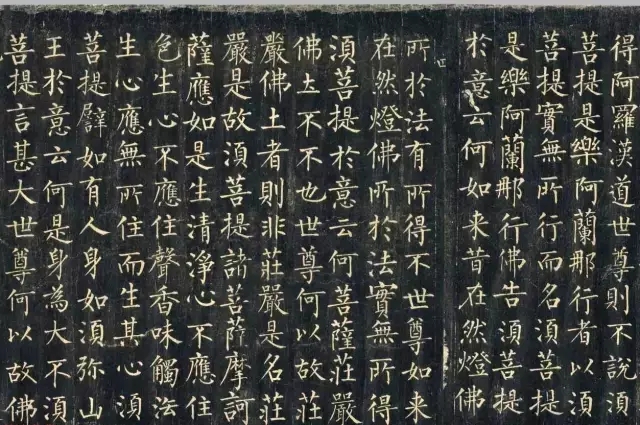 得阿羅漢道世尊則不說須
菩提是樂阿蘭那行者以須
菩提實無所行而名須菩提
是樂阿蘭那行佛告須菩提
於意云何如来昔在然燈佛
所於法有所得不世尊如来
在然燈佛所於法實無所得
須菩提於意云何菩薩莊嚴
佛土不不也世尊何以故莊
嚴佛土者則非莊嚴是名莊
嚴是故須菩提諸菩薩摩訶
薩應如是生清淨心不應住
色生心不應住聲香味觸法
生心應無所住而生其心須
菩提譬如有人身如須弥山
王於意云何是身為大不須
菩提言甚大世尊何以故佛